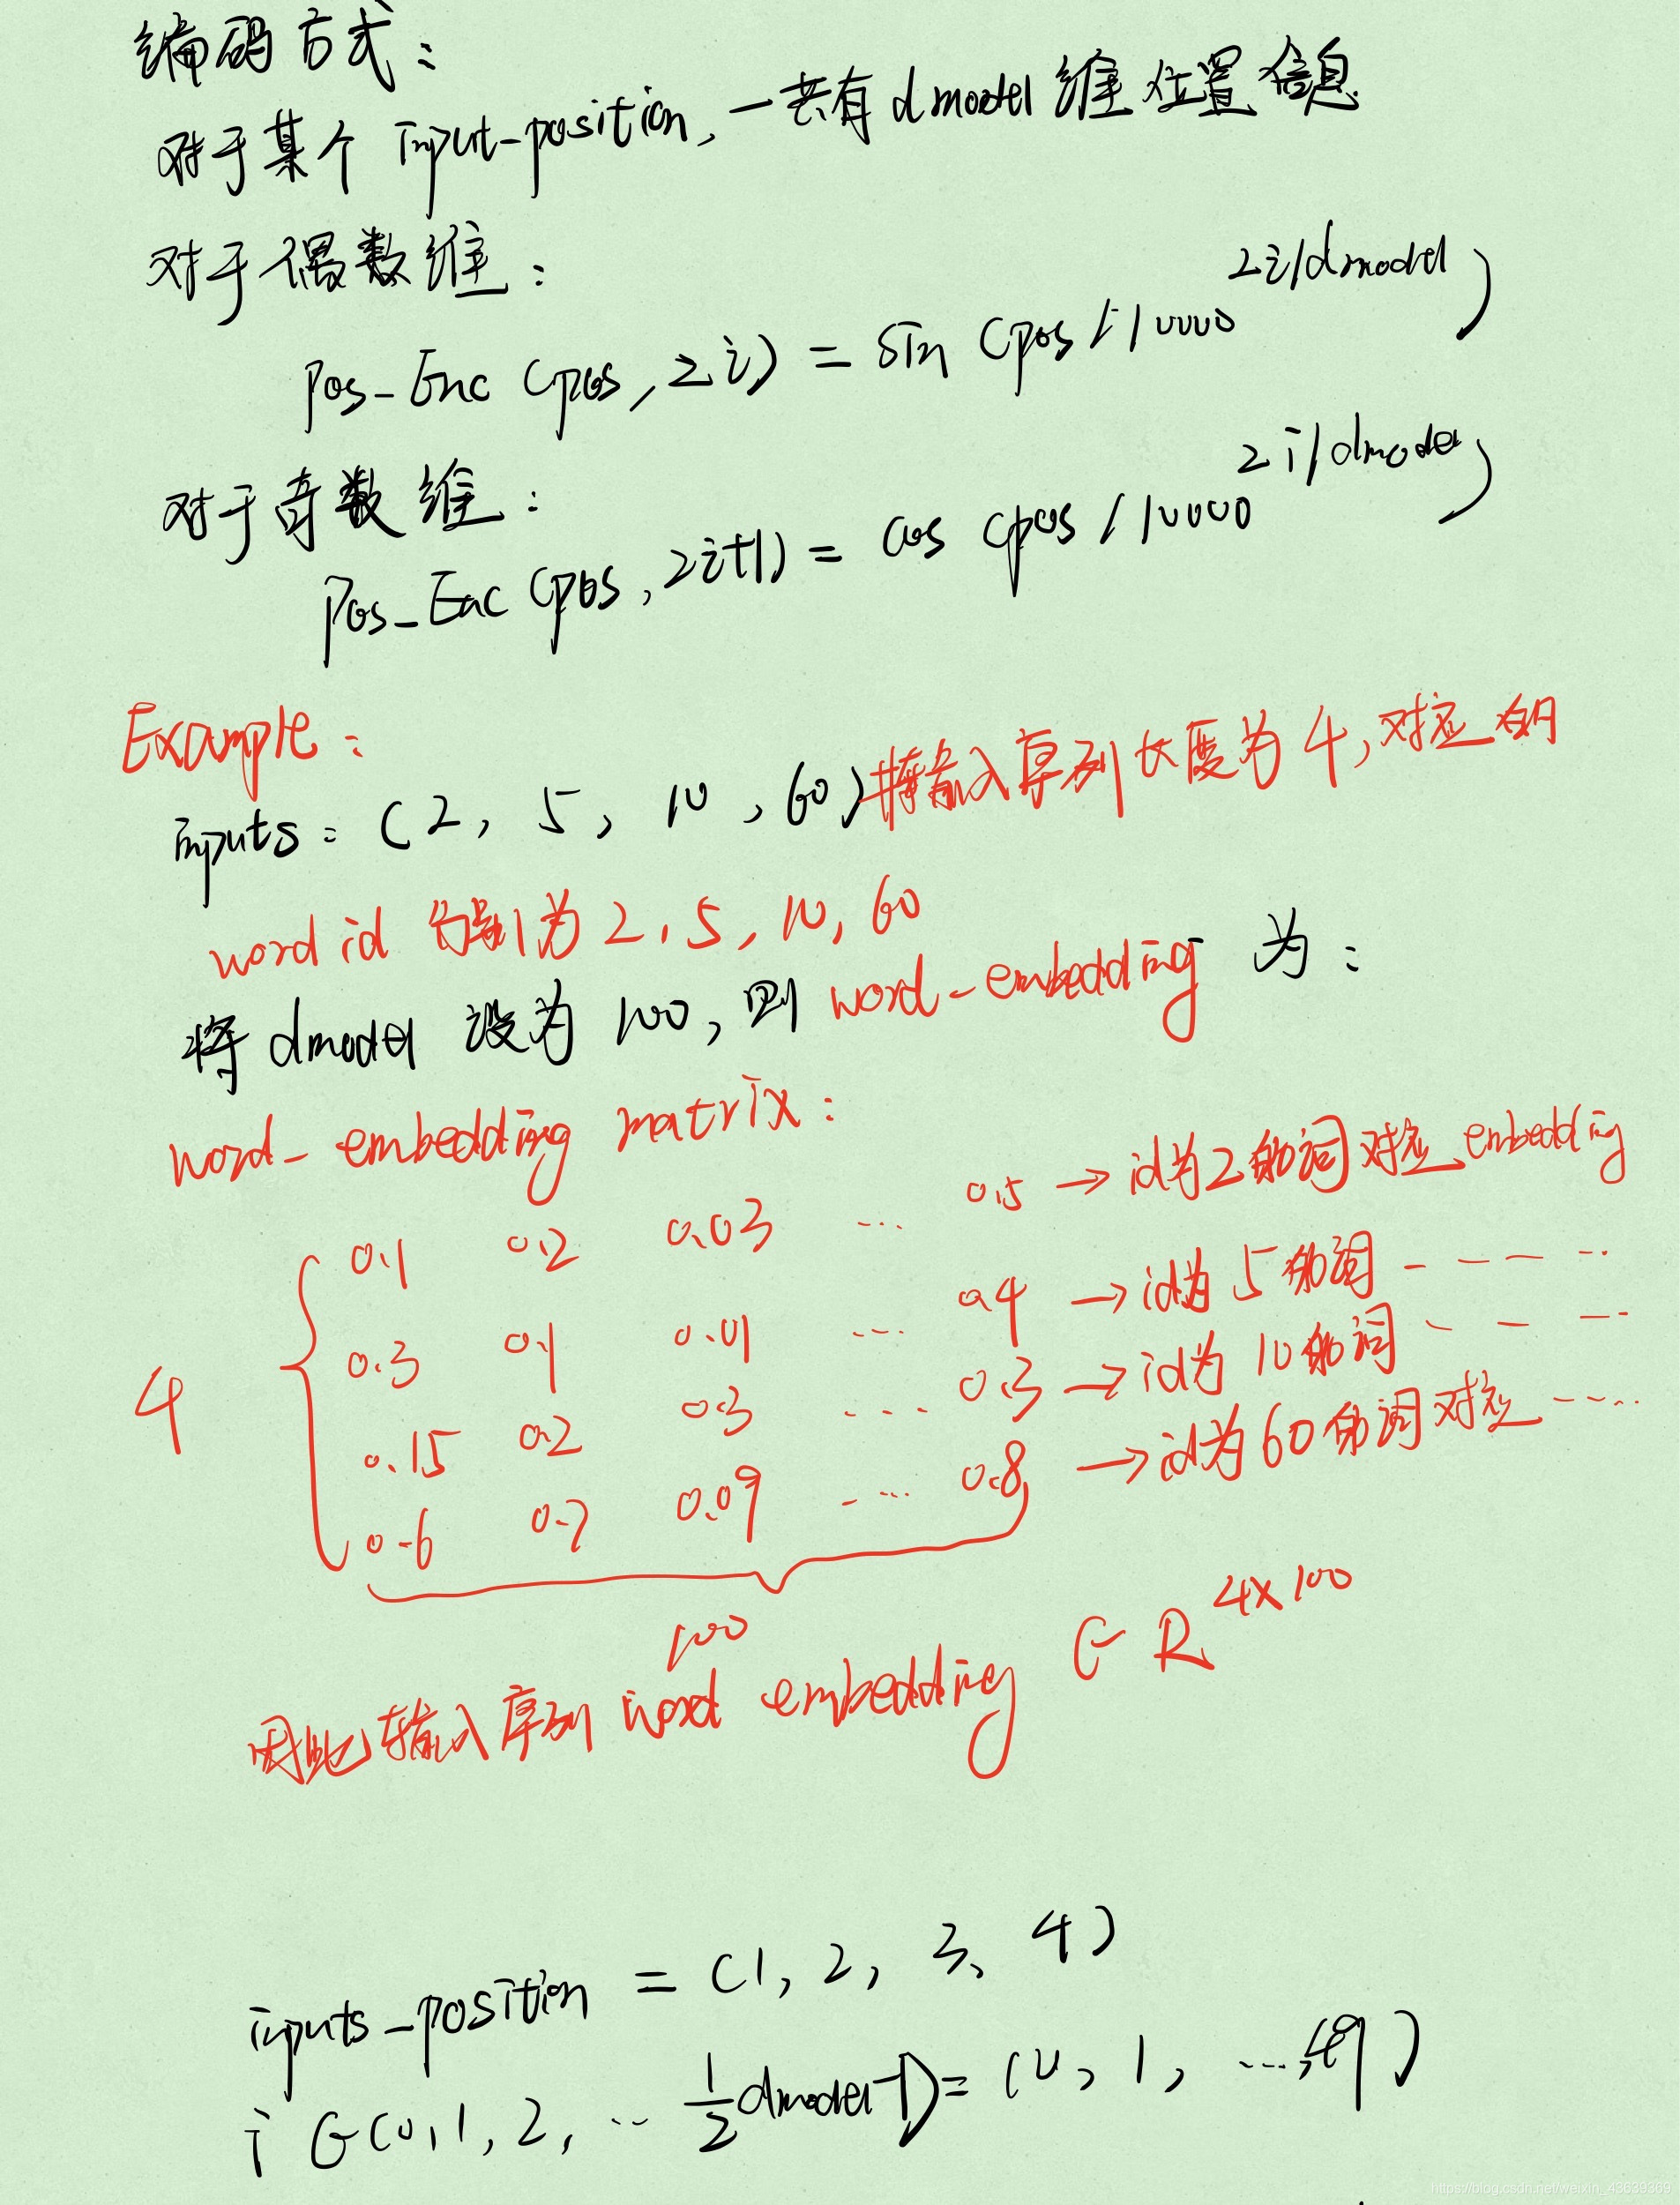 编码方式：
对于某个 input-position，一共有 dmodel 维位置信息
对于偶数维：
Pos_Enc (pos, 2i) = sin (pos / 10000^2i/dmodel)
对于奇数维：
Pos_Enc (pos, 2i+1) = cos (pos / 10000^2i/dmodel)
Example：
inputs: (2, 5, 10, 60) 输入序列长度为4, 对应的
word id 分别为 2, 5, 10, 60
将 dmodel 设为 100, 则 word-embedding 为：
word-embedding matrix：
0.1 0.2 0.03 ... 0.5 → id为2的词对应 embedding
0.3 0.1 0.01 ... 0.4 → id为5的词 ----
4
0.15 0.2 0.3 .... 0.3 → id为10的词 ----
0.6 0.7 0.09 .... 0.8 → id为60的词对应 ----
100
因此输入序列 word embedding ∈ R^4×100
inputs_position = (1, 2, 3, 4)
i ∈ (0, 1, 2, ... 1/2 dmodel-1) = (0, 1, ..., 49)